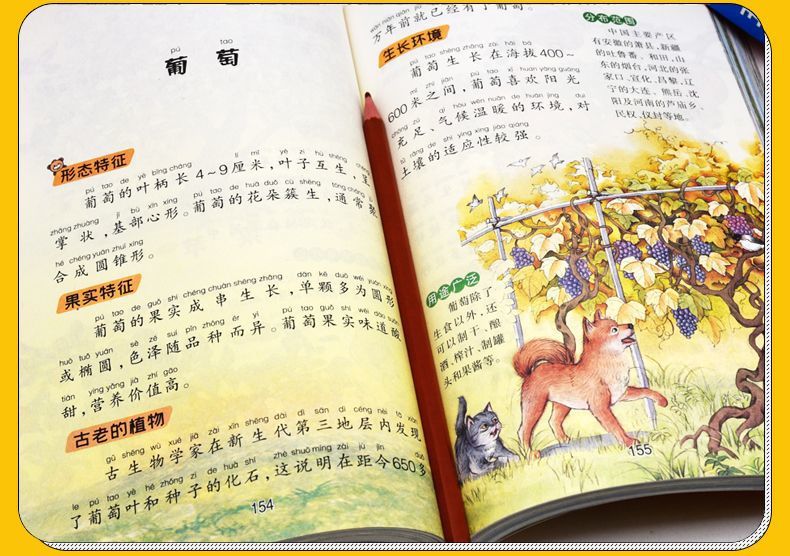 pú tao
葡 萄
形态特征
pú tao de yè bǐng cháng lí mǐ yè zi hù shēng chéng
葡萄的叶柄长4~9厘米,叶子互生,呈
zhǎng zhuàng jī bù xīn xíng pú tao de huā duǒ cù shēng tōng cháng jù
掌状,基部心形。葡萄的花朵簇生,通常聚
hé chéng yuán zhuī xíng
合成圆锥形。
果实特征
pú tao de guǒ shí chéng chuàn shēng zhǎng dān kē duō wéi yuán xíng
葡萄的果实成串生长,单颗多为圆形
huò tuǒ yuán sè zé suí pǐn zhǒng ér yì pú tao guǒ shí wèi dào suān
或椭圆,色泽随品种而异。葡萄果实味道酸
tián yíng yǎng jià zhí gāo
甜,营养价值高。
古老的植物
gǔ shēng wù xué jiā zài xīn shēng dài dì sān dì céng nèi fā xiàn
古生物学家在新生代第三地层内发现
le pú tao yè hé zhǒng zi de huà shí zhè shuō míng zài jù jīn duō
了葡萄叶和种子的化石,这说明在距今650多
154
wàn nián qián jiù
万年前就已经有了葡萄。
生长环境
pú tao shēng zhǎng zài hǎi bá
葡萄生长在海拔400~
mǐ zhī jiān pú tao xǐ huān yáng guāng
600米之间,葡萄喜欢阳光
chōng zú qì hòu wēn nuǎn de huán jìng duì
充足、气候温暖的环境,对
tǔ rǎng de shì yìng xìng jiào qiáng
土壤的适应性较强。
分布范围
中国主要产区
有安徽的萧县,新疆
的吐鲁番、和田,山
东的烟台,河北的张
家口、宣化、昌黎,辽
宁的大连、熊岳、沈
阳及河南的芦庙乡、
民权、仪封等地。
用途广泛
葡萄除了
生食以外,还
可以制干、酿
酒、榨汁、制罐
头和果酱等。
155